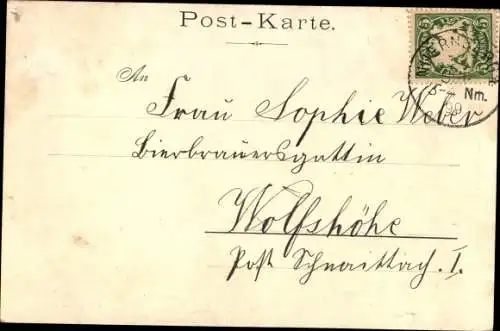 Post-Karte.
5 5
Nm.
An
Frau Sophie Weber
Bierbrauersgattin
Wolfshöhe
Post Schnaittach. I.